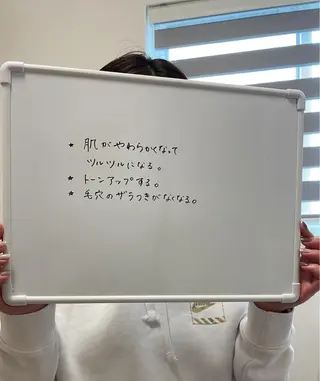 * 肌がやわらかくなって
ツルツルになる。
* トーンアップする。
* 毛穴のザラつきがなくなる。